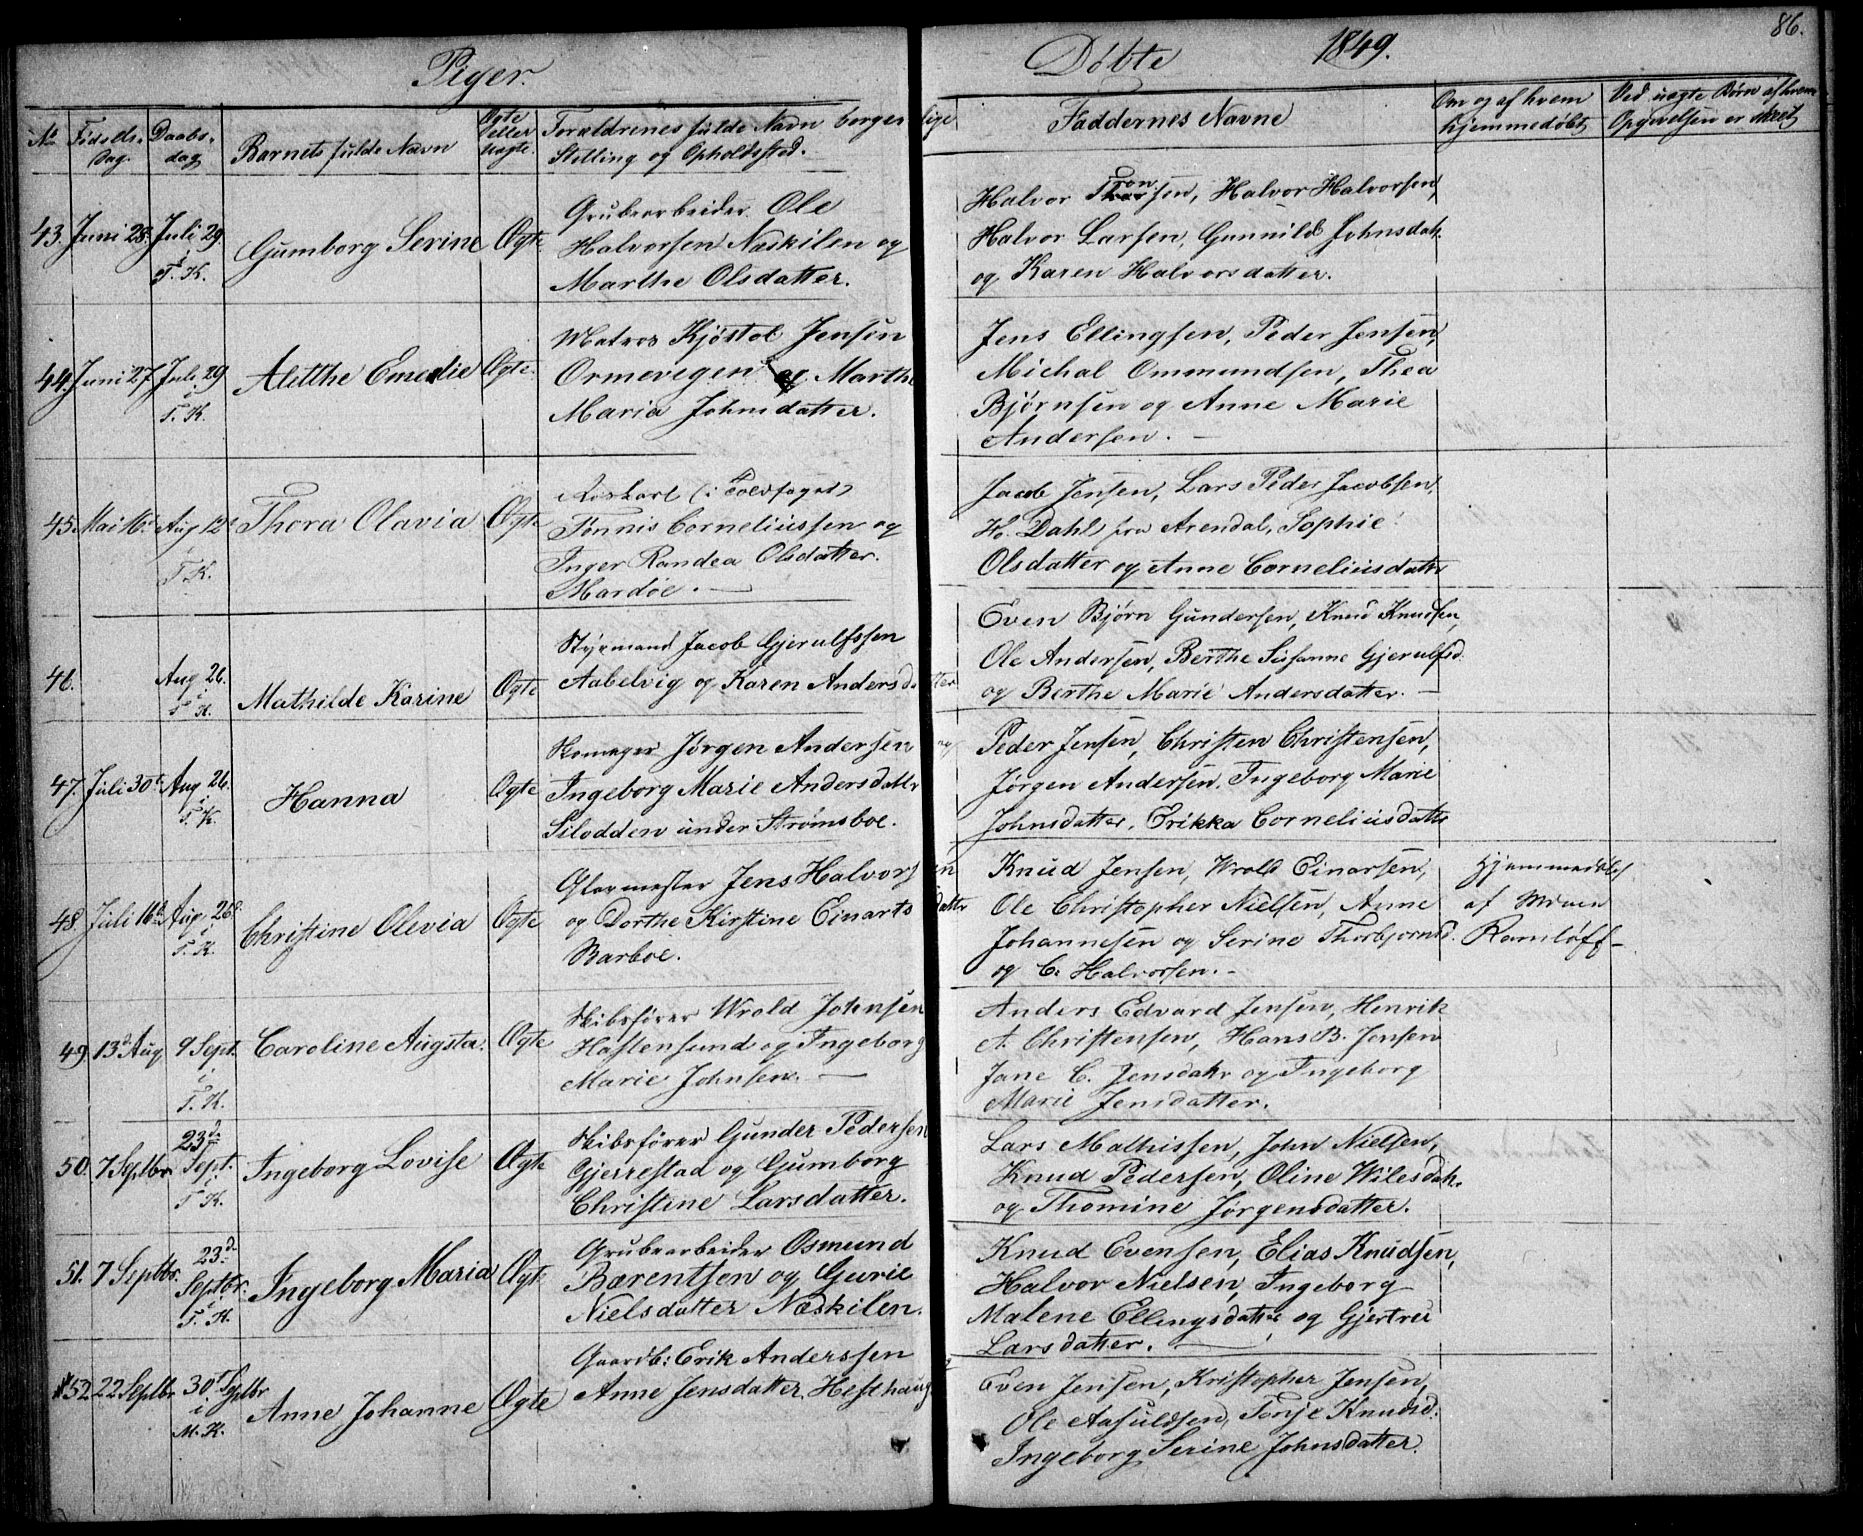 Piger.
Døbte 1849. 86.
No Fødsels-dag. Daabs-dag Barnets fulde Navn Ægte eller uægte. Forældrenes fulde Navn borgerlige Stilling og Opholdssted. Faddernes Navne Om og af hvem hjemmedøbt Ved uægte Børn af hvem Opgivelsen er skeet
43. Juni 28. Juli 29 i T. K. Gumborg Serine Ægte
Grubearbeider Ole
Halvorsen Næskilen og
Marthe Olsdatter.
Halvor Tronsen, Halvor Halvorsen,
Halvor Larsen, Gunnild Johnsdatr.
og Karen Halvorsdatter.
44. Juni 27. Juli 29 i T. K. Alitthe Emedie Ægte.
Matros Kjøstol Jensen
Ormevigen og Marthe
Maria Johnsdatter.
Jens Ellingsen, Peder Jensen,
Michal Ommundsen, Thea
Bjørnsen og Anne Marie
Andersen. —
45. Mai 16. Aug 12 i T. K. Thora Olavia Ægte
(i Toldfaget)
Tønnis Corneliussen og
Inger Randea Olsdatter.
Mardøe. —
Jacob Jensen, Lars Peder Jacobsen,
H. Dahl fra Arendal, Sophie
Olsdatter og Anne Corneliusdattr
46. Aug 26. i T. K. Mathilde Karine Ægte
Styrmand Jacob Gjerulfssen
Aabelvig og Karen Andersdatter
Even Bjørn Gundersen, Knud Knudsen,
Ole Andersen, Berthe Susanne Gjerulfsd.
og Berthe Marie Andersdatter. —
47. Juli 30te Aug 26. i T. K. Hanna Ægte
Skomager Jørgen Andersen og
Ingeborg Marie Andersdattr
Silodden under Strømsboe.
Peder Jensen, Christen Christensen,
Jørgen Andersen, Ingeborg Marie
Johnsdatter, Erikka Corneliusdattr
48. Juli 16de Aug. 26. i T. K. Christine Olevia Ægte
Glarmester Jens Halvorsen
og Dorthe Kirstine Einartsdattr
Barboe.
Knud Jensen, Wrold Einarsen,
Ole Christopher Nielsen, Anne
Johannesen og Serine Thorbjornsd.
og C. Halvorsen. -
Hjemmedøbt
af Mdme
Ramløff -
49. 13d Aug 9 Sept. i T. K. Caroline Augsta. Ægte
Skibsfører Wrold Johnsen
Hastensund og Ingeborg
Marie Johnsen. —
Anders Edvard Jensen, Henrik
A. Christensen, Hans B. Jensen
Jane C. Jensdatr og Ingeborg
Marie Jensdatter.
50. 7 Septbr. 23d Sept. i T. K. Ingeborg Lovise Ægte
Skibsfører Gunder Pedersen
Gjerrestad og Gumborg
Christine Larsdatter.
Lars Mathissen, John Nielsen,
Knud Pedersen, Oline Wilesdatr.
og Thomine Jørgensdatter.
51. 7 Septbr. 23d Septbr. i T. K. Ingeborg Maria Ægte
Grubearbeider Osmund
Bærentsen og Gurie
Nielsdatter Næskilen.
Knud Evensen, Elias Knudsen,
Halvor Nielsen, Ingeborg
Malene Ellingsdatter og Gjertred
Larsdatter. —
52. 22 Septbr. 30t Septbr i M. K. Anne Johanne Ægte
Gaardb: Erik Anderssen
Anne Jensdatter Hesthaug
Even Jensen, Kristopher Jensen,
Ole Aasuldsen, Tonje Knudsd:
Ingeborg Serine Johnsdatter.